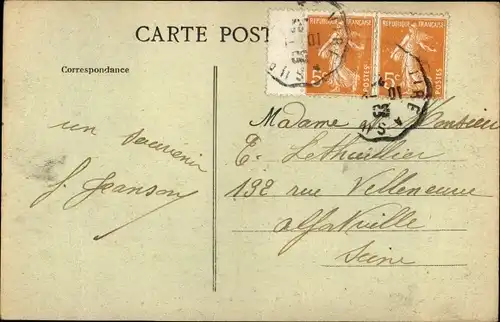 CARTE POST
Correspondance
REPUBLIQUE FRANÇAISE
REPUBLIQUE FRANÇAISE
5c
POSTES
5c
POSTES
un souvenir
J. Jeanson
Madame Monsieur
E. Lethuillier
132 rue Villeneuve
alfortville
Seine